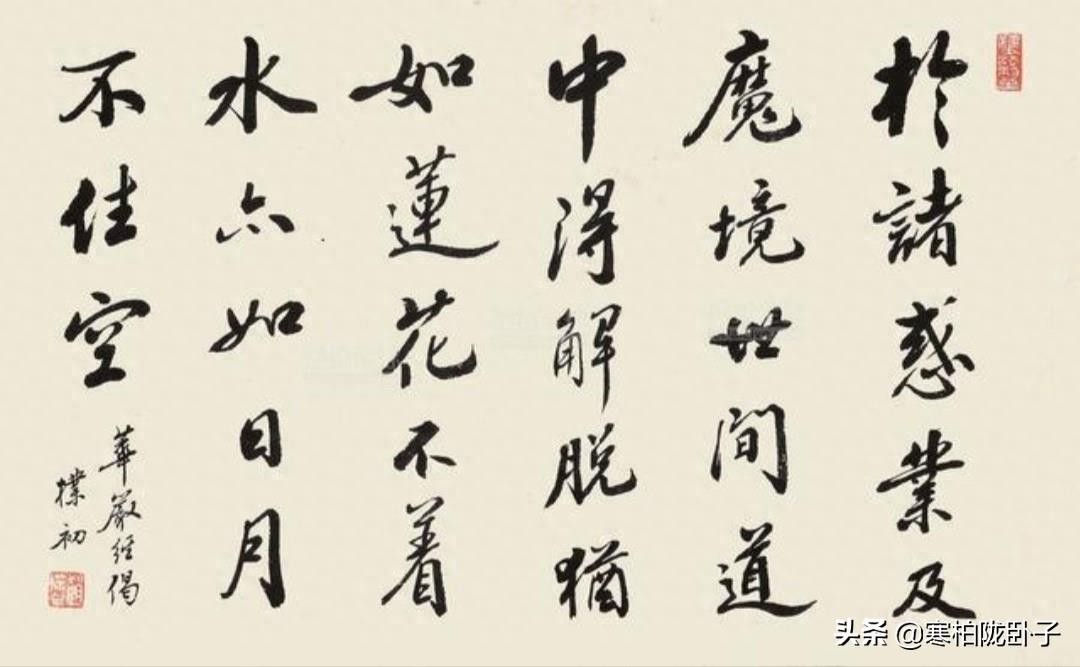 於諸惑業及
魔境世間道
中得解脱猶
如蓮花不着
水亦如日月
不住空
華嚴經偈
樸初
头条 @寒柏陇卧子